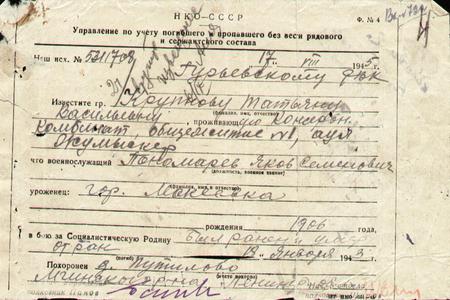 НКО–СССР
Ф. № 4
Управление по учету погибшего и пропавшего без вести рядового
и сержантского состава
Наш исх. № 17 VIII 1945 г.
Гурьевскому РВК
Известите гр. Крупнову Татьяну
(фамилия, имя, отчество)
Васильевну, проживающую Консервн.
комбинат, общежитие №1, аул
что военнослужащий Пономарев Яков Семенович
(должность, военное звание)
(фамилия, имя и отчество)
уроженец: гор. Макеевка
рождения 1906 года,
в бою за Социалистическую Родину был ранен и умер
от ран 19 января 1943 г.
Похоронен д. Путилово
Мгинского р-на Ленингр.